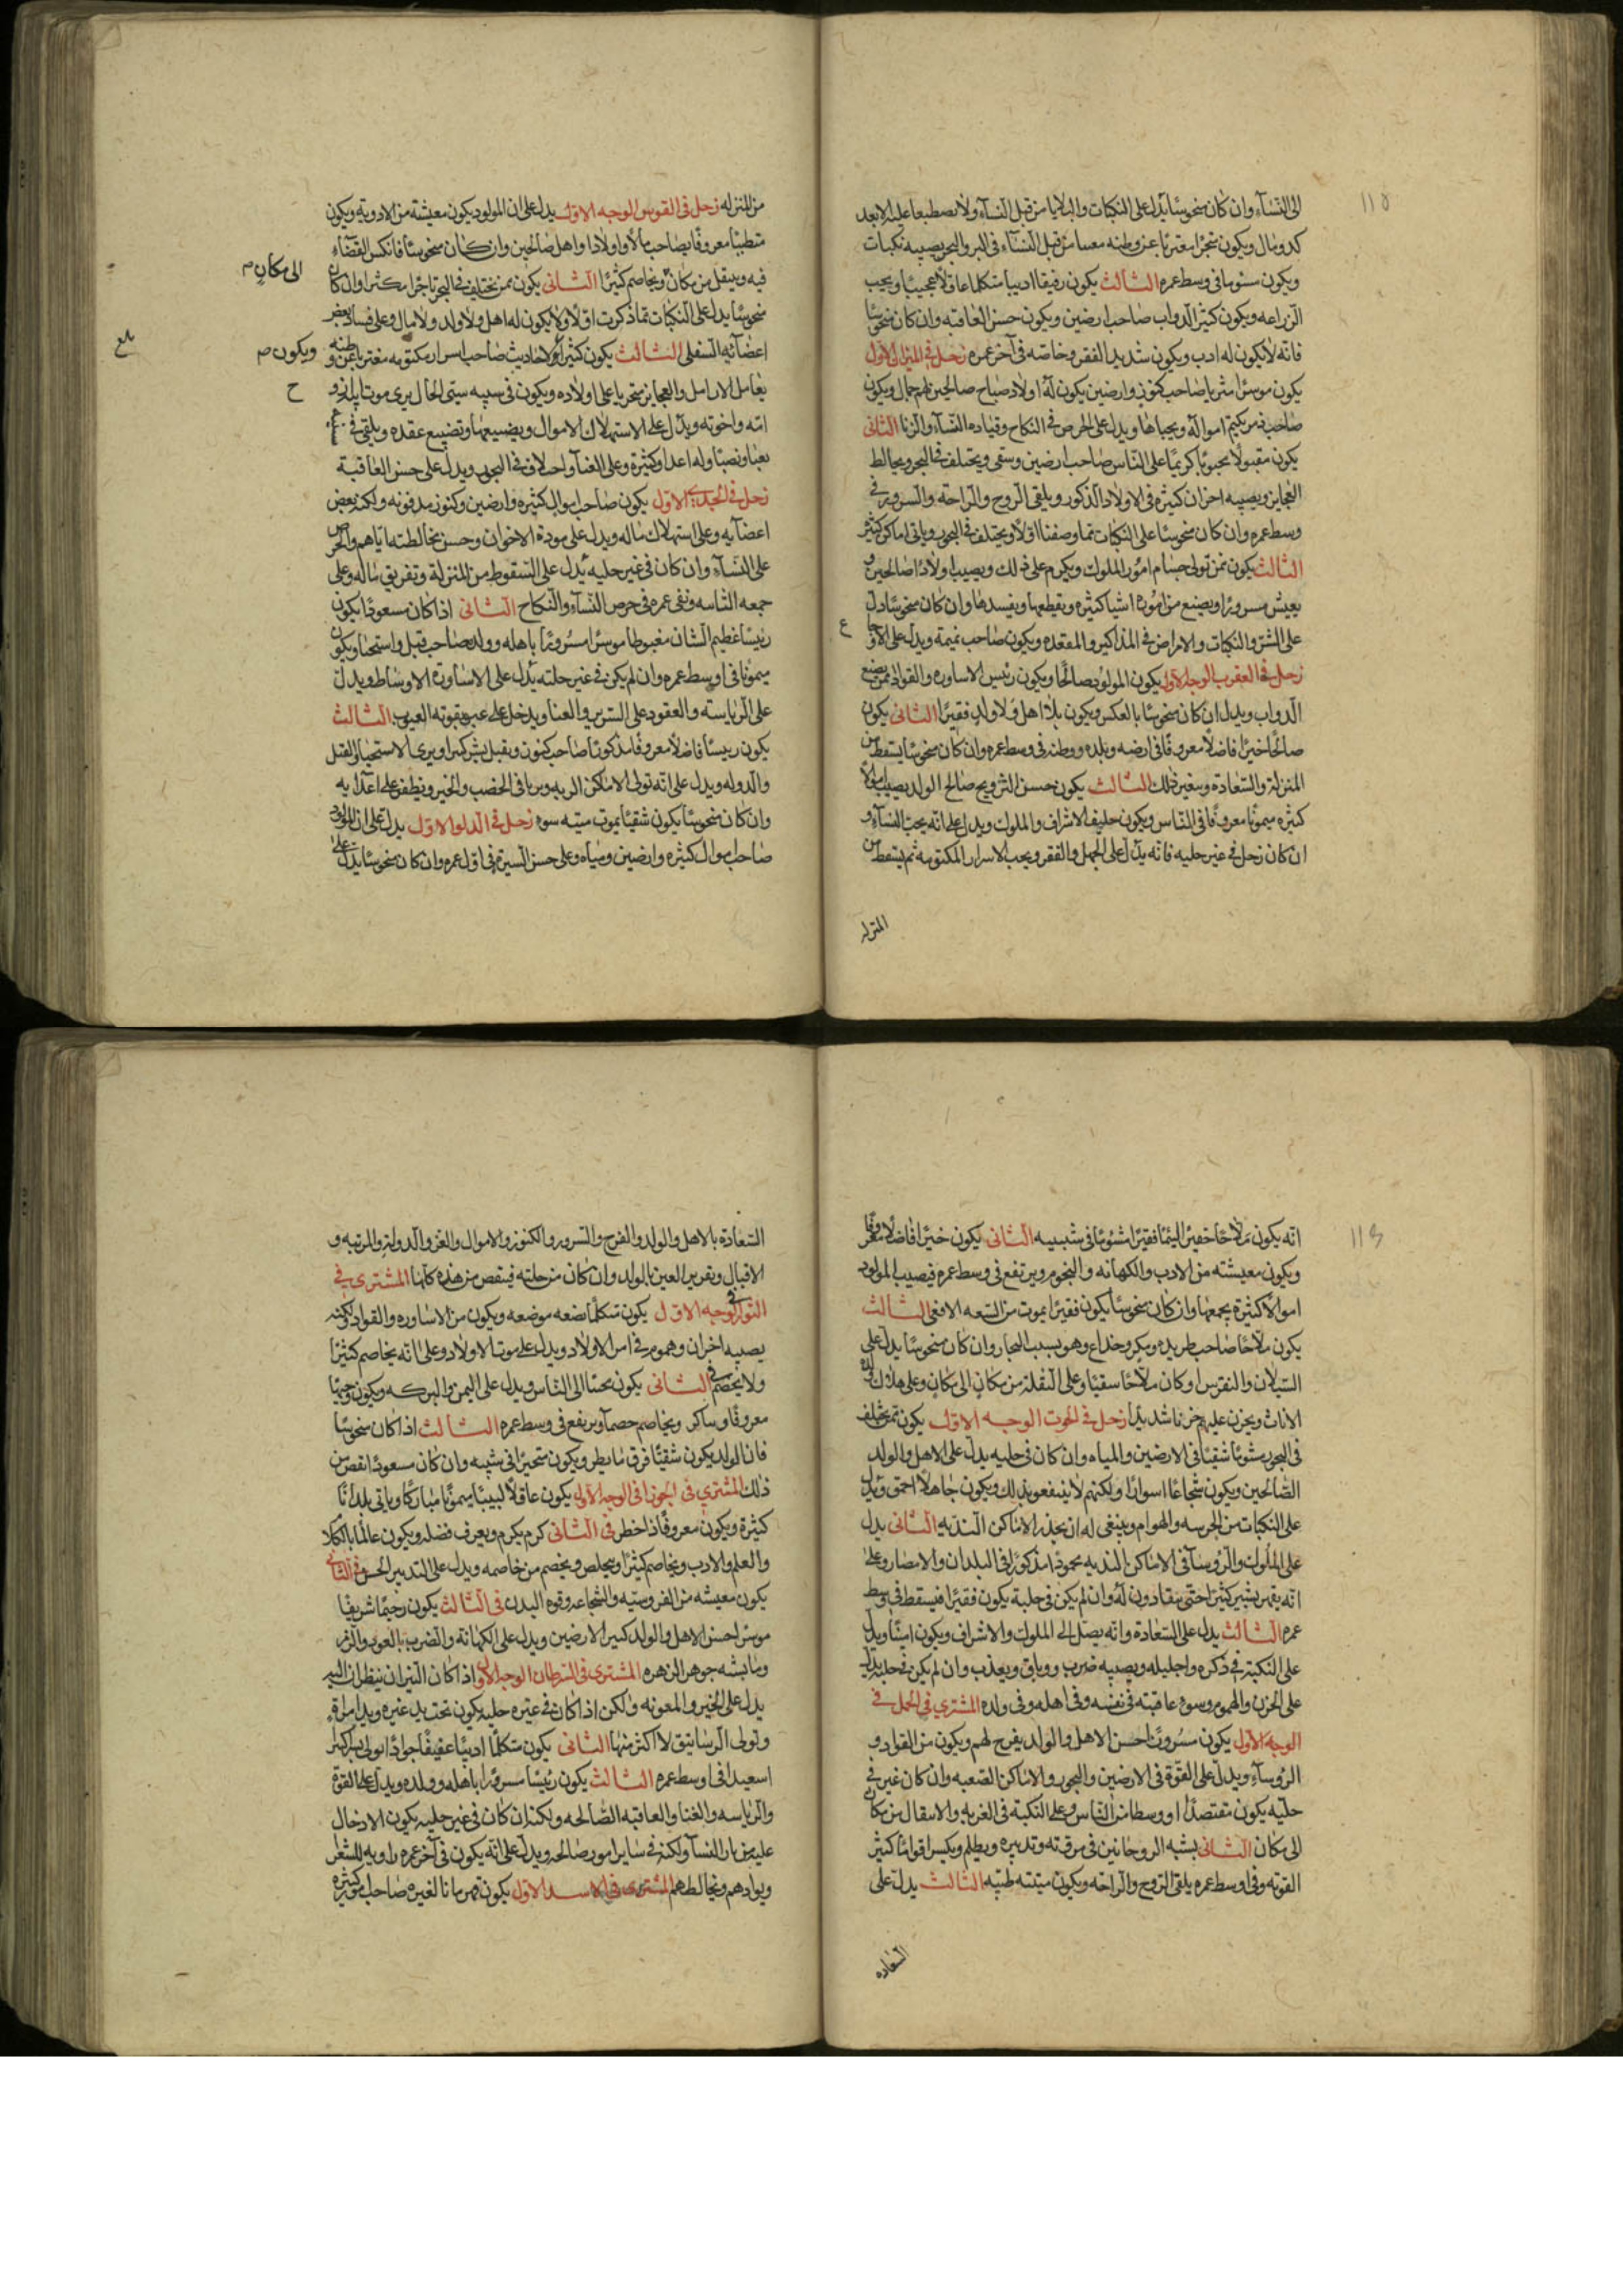 ١١٥
الى النسآء وان كان منحوسًا يدل على النكبات والبلايا من قبل النسآء ولا يصطبعا عليه الا بعد
كد ومال ويكون متجرًا مغتربًا عن وطنه من قبل النسآء فى البر والبحر يصيبه نكبات
ويكون فى وسط عمره الثالث يكون رفيقا اديبا متكلما عاقلا ويحب
الزراعه ويكون كثير الدواب صاحب ارضين ويكون حسن العاقبه وان كان منحوسًا
فانه لا يكون له ادب ويكون شديد الفقر وخاصّه فى آخر عمره زحل فى الميزان الاول
يكون موسرًا مثريا صاحب كنوز وارضين يكون له اولاد صباح صالحين لهم جمال ويكون
صاحب اموآله ويدل على الحرص فى النكاح وقياده النسآء والزنا الثانى
يكون مقبولًا محبوبًا كريمًا على الناس صاحب ارضين وسقى ويختلف فى البحر ويخالط
العجايز ويصيبه احزان كثيره فى الاولاد الذكور ويلقى الروح والراحة والسرور فى
وسط عمره وان كان منحوسًا على النكبات مما وصفنا اولًا ويختلف فى البحر وياتى اماكن كثير
الثالث يكون ممن تولى امور الملوك ويكرم على ذلك ويصيب اولادًا صالحين و
يعيش مسرورًا ويصنع من اموره اشيا كثيره ويقطعها ويفسدها وان كان منحوسًا دل
على الشر والنكبات والامراض فى المذاكير والمقعده ويكون صاحب نميمة ويدل على الاوجاع
زحل فى العقرب الوجه الاول يكون المولود صالحًا ويكون رئيس الاساوره والقواد ممن يصنع
الدواب ويدل ان كان منحوسًا بالعكس ويكون بلا اهل ولا ولد فقيرًا الثانى يكون
صالحًا خيرًا فاضلًا معروفًا فى ارضه وبلده ووطنه فى وسط عمره وان كان منحوسًا يسقط من
المنزلة والسعادة وبغير ذلك الثالث يكون حسن التزويج صالح الولد يصيب اموالًا
كثيره ميمونًا معروفًا فى الناس ويكون حليف الاشراف والملوك ويدل على انه يحب النسآء و
ان كان زحل فى غير حليه فانه يدل على الجهل والفقر ويحب الاسرار المكتومه ثم يسقط من
المنزله
من المنزله زحل فى القوس الوجه الاول يدل على ان المولود يكون معيشته من الادوية ويكون
متطببًا معروفًا يصاحب مالًا واولادًا واهل صالحين وان كان منحوسًا فانكس القضآء
فيه وينتقل من مكان ويخاصم كثيرًا الثانى يكون ممن يختلف فى البحر تاجرًا مكثرا وان كان
الى مكان م
منحوسًا يدل على النكبات مما ذكرت اولًا ولا يكون له اهل ولا ولد ولا مال وعلى فساد بعض
اعضآئه السفلى الثالث يكون كثير الاحاديث صاحب اسرار مكتومه مغتربا عن وطنه
ويكون م
يعامل الارامل والعجايز متحريا على اولاده ويكون فى سيئ الحال يرى موت ابيه و
ح
امه واخوته ويدل على الاستهلاك الاموال ويضيعها وتضييع عقده ويلقى فى
تعبا ونصبا وله اعداء كثيرة وعلى الغنآء واختلاف فى البحر ويدل على حسن العاقبة
زحل فى الجدى الاول يكون صاحب اموال كثيره وارضين وكنوز مدفونه ولكنه بعض
اعضآيه وعلى استهلاك ماله ويدل على مودة الاخوان وحسن مخالطته اياهم والحرص
على النسآء وان كان فى غير حليه يدل على السقوط من المنزلة وتفريق ماله وعلى
عمره فى حرص النسآء والنكاح الثانى اذا كان مسعودًا يكون
رئيسًا عظيم الشان مغبوطا موسرًا مسرورًا باهله وولده صاحب ويكون
ميمونًا فى اوسط عمره وان لم يكن فى غير حليته يدل على الاساورة الاوساط ويدل
على الرياسته والعقود على السرير والغنا ويدخل على الثالث
يكون رئيسًا فاضلًا معروفا مذكورًا صاحب كنوز
والدوله ويدل على انه تولى الاماكن فى الخصب والخير ويظفر على اعدآيه
وان كان منحوسًا يكون شقيًا يموت ميته سوء زحل فى الدلو الاول يدل على ان المولود
صاحب اموال كثيره وارضين ومياه وعلى حسن السيرة فى اول عمره وان كان منحوسًا يدل على
١١٦
انه يكون ملاحًا حقيرًا ليئمًا فقيرًا مشئومًا فى شبيبه الثانى يكون خيرًا فاضلًا معروفا
ويكون معيشته من الادب والكهانه والنجوم ويرتفع فى وسط عمره فيصيب المولود
اموالًا كثيرة يجمعها وان كان منحوسًا يكون فقيرًا يموت من لسعه الافعى الثالث
يكون ملاحًا صاحب طريده ومكر وخداع وهو بسبب البحار وان كان منحوسًا يدل على
السيلان والنقرس او كان ملاحًا سقيًا وعلى النقلة من مكان الى مكان وعلى هلاك ولده
الاناث ويحزن عليهم حزنا شديدًا زحل فى الحوت الوجه الاول يكون ممن يختلف
فى البحر مشومًا شقيًا فى الارضين والمياه وان كان فى حليه يدل على الاهل والولد
الصالحين ويكون شجاعًا اسوارًا ولكنهم لا ينفعو بذلك ويكون جاهلًا احمق ويدل
على النكبات من الحرسه والهوام وينبغى له ان يحذر الاماكن النديه الثانى يدل
على الملوك والرؤسآ فى الاماكن النديه محمودًا مذكورًا فى البلدان والامصار وعلى
انه يقهر بشر كثيرًا حتى ينقادون له وان لم يكن فى حليه يكون فقيرًا فيسقط فى وسط
عمره الثالث يدل على السعادة وانه يصل الى الملوك والاشراف ويكون امينًا ويدل
على النكبة فى ذكره واحليله ويصيبه ضرب ووثاق ويعذب وان لم يكن فى حليه يدل
على الحزن والهموم وسوء عاقبته فى نفسه وفى اهله وفى ولده المشترى فى الحمل فى
الوجه الاول يكون مسرورًا حسن الاهل والولد يفرح لهم ويكون من القواد و
الرؤسآء ويدل على القوة فى الارضين والبحر والاماكن الصعبه وان كان غير فى
حليه يكون مقتصدًا او وسطا من الناس وعلى النكبة فى الغربة والانتقال من مكان
الى مكان الثانى يشبه الروحانيين فى وتدبيره ويظلم ويكسر اقوامًا كثير
القوته وفى اوسط عمره يلقى الروح والراحة ويكون ميتته طيبه الثالث يدل على
السعاده
السعادة بالاهل والولد والفرح والسرور والكنوز والاموال والعز والدولة والمرتبه و
الاقبال وتقرير العين بالولد وان كان من حليته فينقص من هذه كلها المشترى فى
الثور فى الوجه الاول يكون متكلمًا يضعه موضعه ويكون من الاساوره والقواد ولكنه
يصيبه احزان وهموم فى امر الاولاد ويدل على موت الاولاد وعلى انه يخاصم كثيرًا
ولا يخصم فى الثانى يكون محببًا الى الناس ويدل على اليمن والبركه ويكون وجيهًا
معروفًا ويخاصم خصما ويرتفع فى وسط عمره الثالث اذا كان منحوسًا
فان الولد يكون شقيًا ويكون متحيرًا فى شيبه وان كان مسعودًا نقص من
ذلك المشترى فى الجوزا فى الوجه الاول يكون عاقلًا لبيبًا ميمونًا مباركًا وياتى بلدانًا
كثيرة ويكون معروفًا ذا خطر فى الثانى كرم يكرم ويعرف فضله ويكون عالمًا بالكلام
والعلم والادب ويخاصم كثيرًا ويخلص ويخصم من خاصمه ويدل على التدبير الحسن
يكون معيشه من الفروسيه والشجاعه وقوه البدن فى الثالث يكون رحيمًا شريفًا
موسرًا حسن الاهل والولد كبير الارضين ويدل على الكهانة والضرب بالعود والزمر
وما يشبه جوهر الزهره المشترى فى السرطان الوجه الاول واذا كان النيران ينظران اليه
يدل على الخير والمعونه ولكن اذا كان فى غيره حليه يكون تحت يد غيره
وتولى الرساتيق لا اكثر منها الثانى يكون متكلمًا اديبًا عفيفًا جوادًا
سعيدا فى اوسط عمره الثالث يكون رئيسًا مسرورًا باهله وولده ويدل على القوة
والرياسه والغنا والعاقبه الصالحه ولكنه ان كان فى غير حليه يكون الادخال
عليه من باب النسآ ولكنه فى ساير اموره صالحه ويدل على انه يكون فى آخر عمره راويه للشعر
ويوادهم ويخالطهم المشترى فى الاسد الاول يكون صاحب امور كثيره